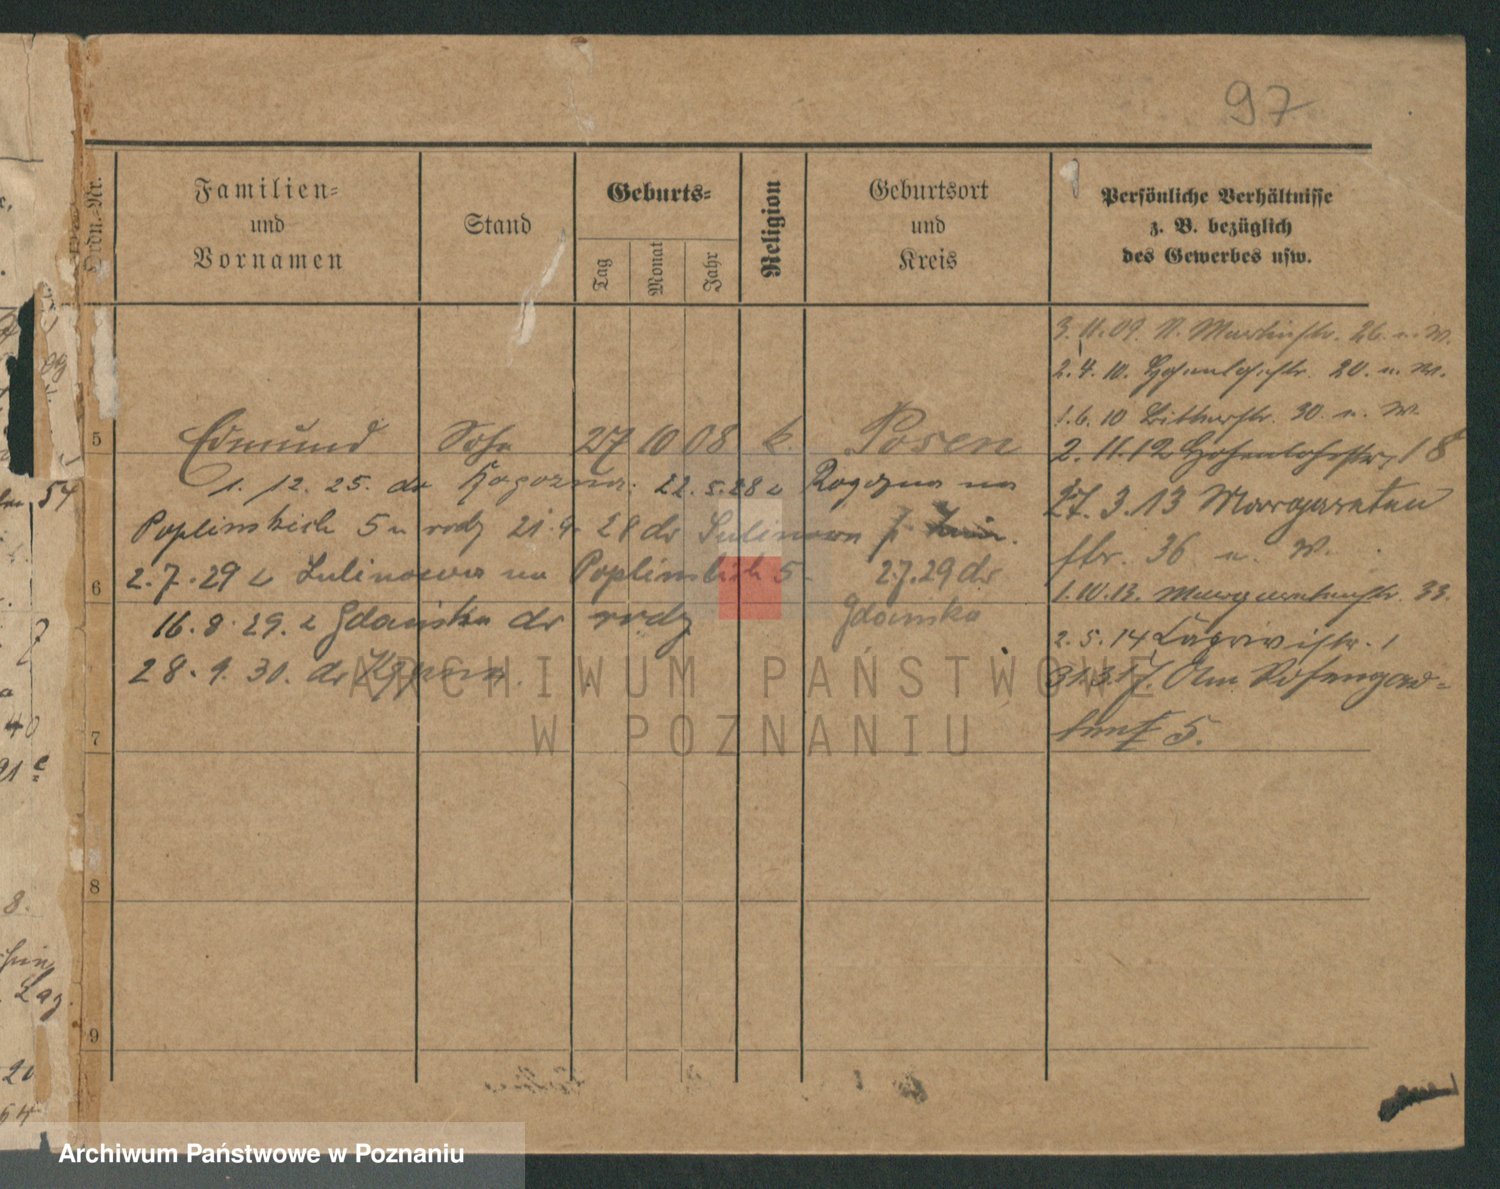 97
Ordn.-Nr.
Familien-
und
Vornamen
Stand
Geburts-
Tag
Monat
Jahr
Religion
Geburtsort
und
Kreis
Persönliche Verhältnisse
z. B. bezüglich
des Gewerbes usw.
3. 11. 09. Martinstr. 26. u. W.
2. 4. 10. Hohenlohestr. 20. u. W.
1. 6. 10 30. u. W.
5 Edmund Sohn 27 10 08 k. Posen
2. 11. 12 Hohenlohestr. 18
1. 12. 25. do Rogozna. 22. 5. 28 z Rogozna na
27. 3. 13 Margareten
Poplinskich 5 u rodz 21. 9. 28 do Sulinowa
str. 36 u. W.
6 2. 7. 29 z Sulinowa na Poplinskich 5 - 2.7.29 do
1. 10. 13. Margaretenstr. 33.
16. 8. 29. z Gdańska do rodz Gdańska
2. 5. 14 1
28. 9. 30. do
31. 3. 17. Am Rosengar-
7 5.
8
9
54
40
91
8.
20
54
ARCHIWUM PAŃSTWOWE
W POZNANIU
Archiwum Państwowe w Poznaniu